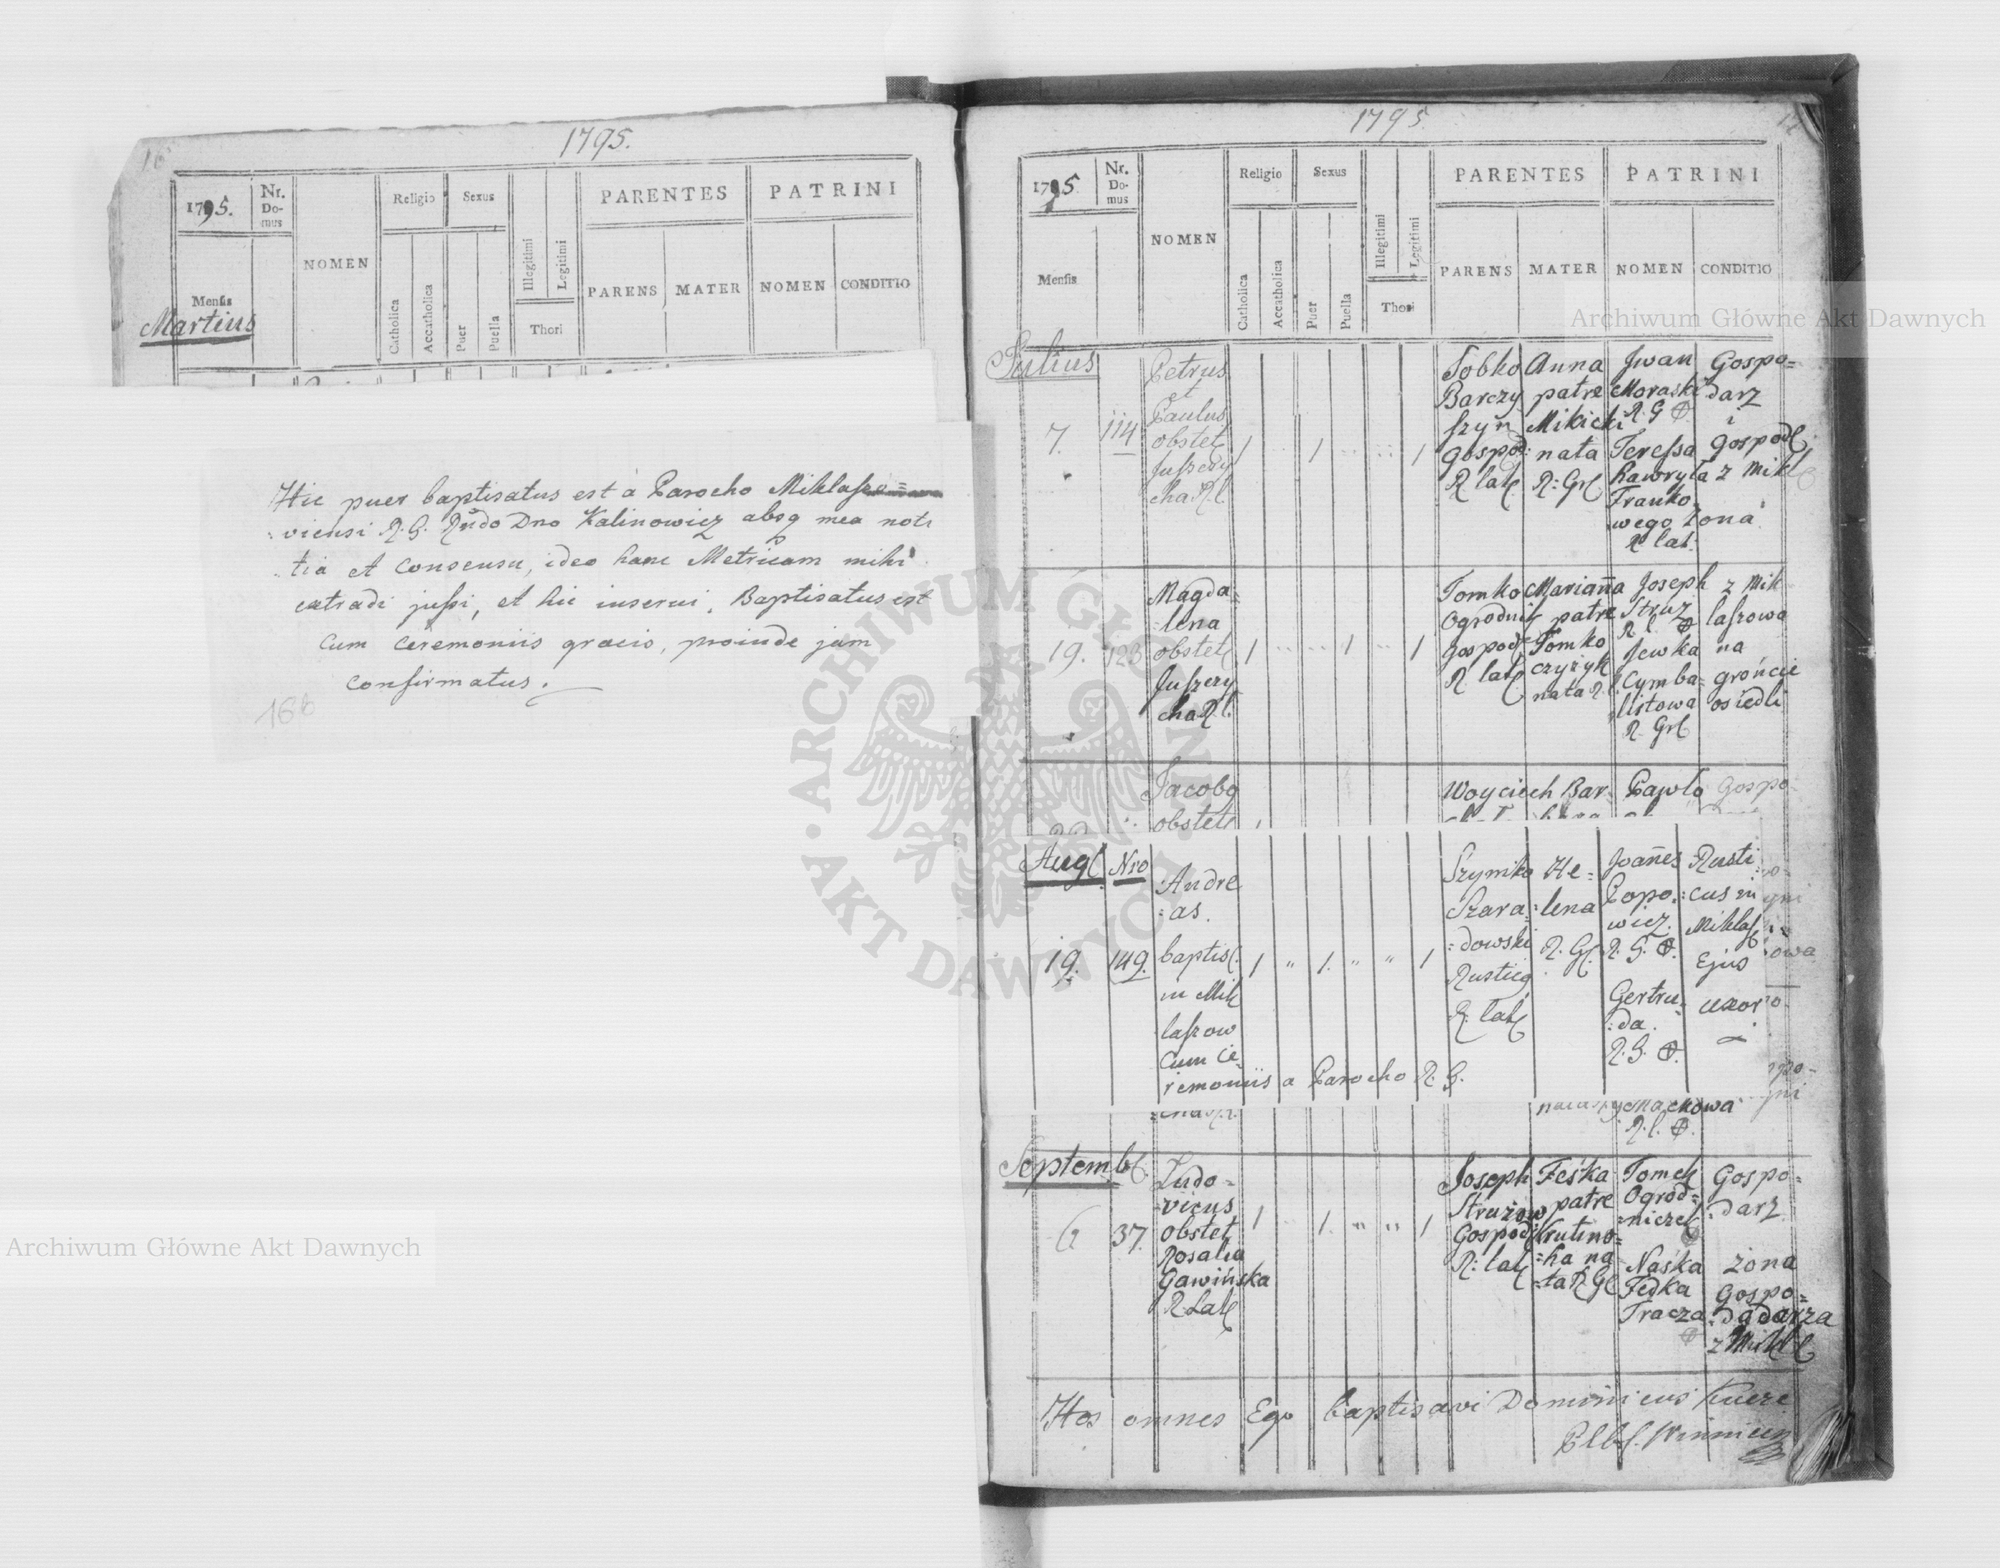 16
1795.
1795.
Nr. Do-mus
NOMEN
Religio
Sexus
Illegitimi
Legitimi
PARENTES
PATRINI
Mensis
Catholica
Accatholica
Puer
Puella
Thori
PARENS
MATER
NOMEN
CONDITIO
Martius
Hic puer baptisatus est à Parocho Miklaszo=
=viensi R. G. Rndo Dno Kalinowicz absq mea noti
tia et consensu, ideo hanc Metricam mihi
extradi jussi, et hic inserui. Baptisatus est
cum ceremoniis graecis, proinde jam
confirmatus.
166
1795
1795
Nr. Do-mus
NOMEN
Religio
Sexus
Illegitimi
Legitimi
PARENTES
PATRINI
Mensis
Catholica
Accatholica
Puer
Puella
Thori
PARENS
MATER
NOMEN
CONDITIO
Julius
7.
114
Petrus
et
Paulus
obstet
Juszczy
cha R. l.
1
1
1
Sobko
Barczy
szyn
Gospod:
R lat
Anna
patre
Mikicki
nata
R: Gr
Jwan
Moraski
R. G
Teressa
Haworyła
Franko
wego żona
R lat.
Gospo=
darz
i
Gospod
z Mikl
19.
123
Magda=
=lena
obstet
Juszczy
cha R. l.
1
1
1
Tomko
Ogrodnik
Gospod
R. lat
Marianna
patre
Tomko
czyżyk
nata R. l.
Joseph
Struz
R. l.
Jewka
Cymba=
listowa
R. Gr
z Mik
laszowa
na
grońcie
osiedli
Jacobg
obstet
Woyciech
Bar=
Pawło
Gospo
Aug
Nro
19.
149.
Andre
=as.
baptis.
in Mik
laszow
cum ce=
remoniis a Parocho R. G.
1
"
1.
"
"
1
Szymko
Szara=
=dowski
Rusticg
R. lat
He=
=lena
R. G.
Joañes
Popo=
wicz.
R. G.
Gertru=
:da.
R. G.
Rusti
=cus in
Miklas
Ejus
uxor
R. l.
Septemb.
6
37.
Ludo=
=vicus
obstet
Rosalia
Gawińska
R. Lat
1
1.
"
"
1
Joseph
Struzow
Gospod
R: lat
Feśka
patre
Krutino=
=ha na
=ta R. G
Tomek
Ogrod=
=niczek
Naśka
Fedka
Tracza
Gospo=
:darz
żona
Gospo=
dadarza
z Mikl
Hos omnes Ego baptisavi Dominicus
Archiwum Główne Akt Dawnych
Archiwum Główne Akt Dawnych
ARCHIWUM GŁÓWNE AKT DAWNYCH